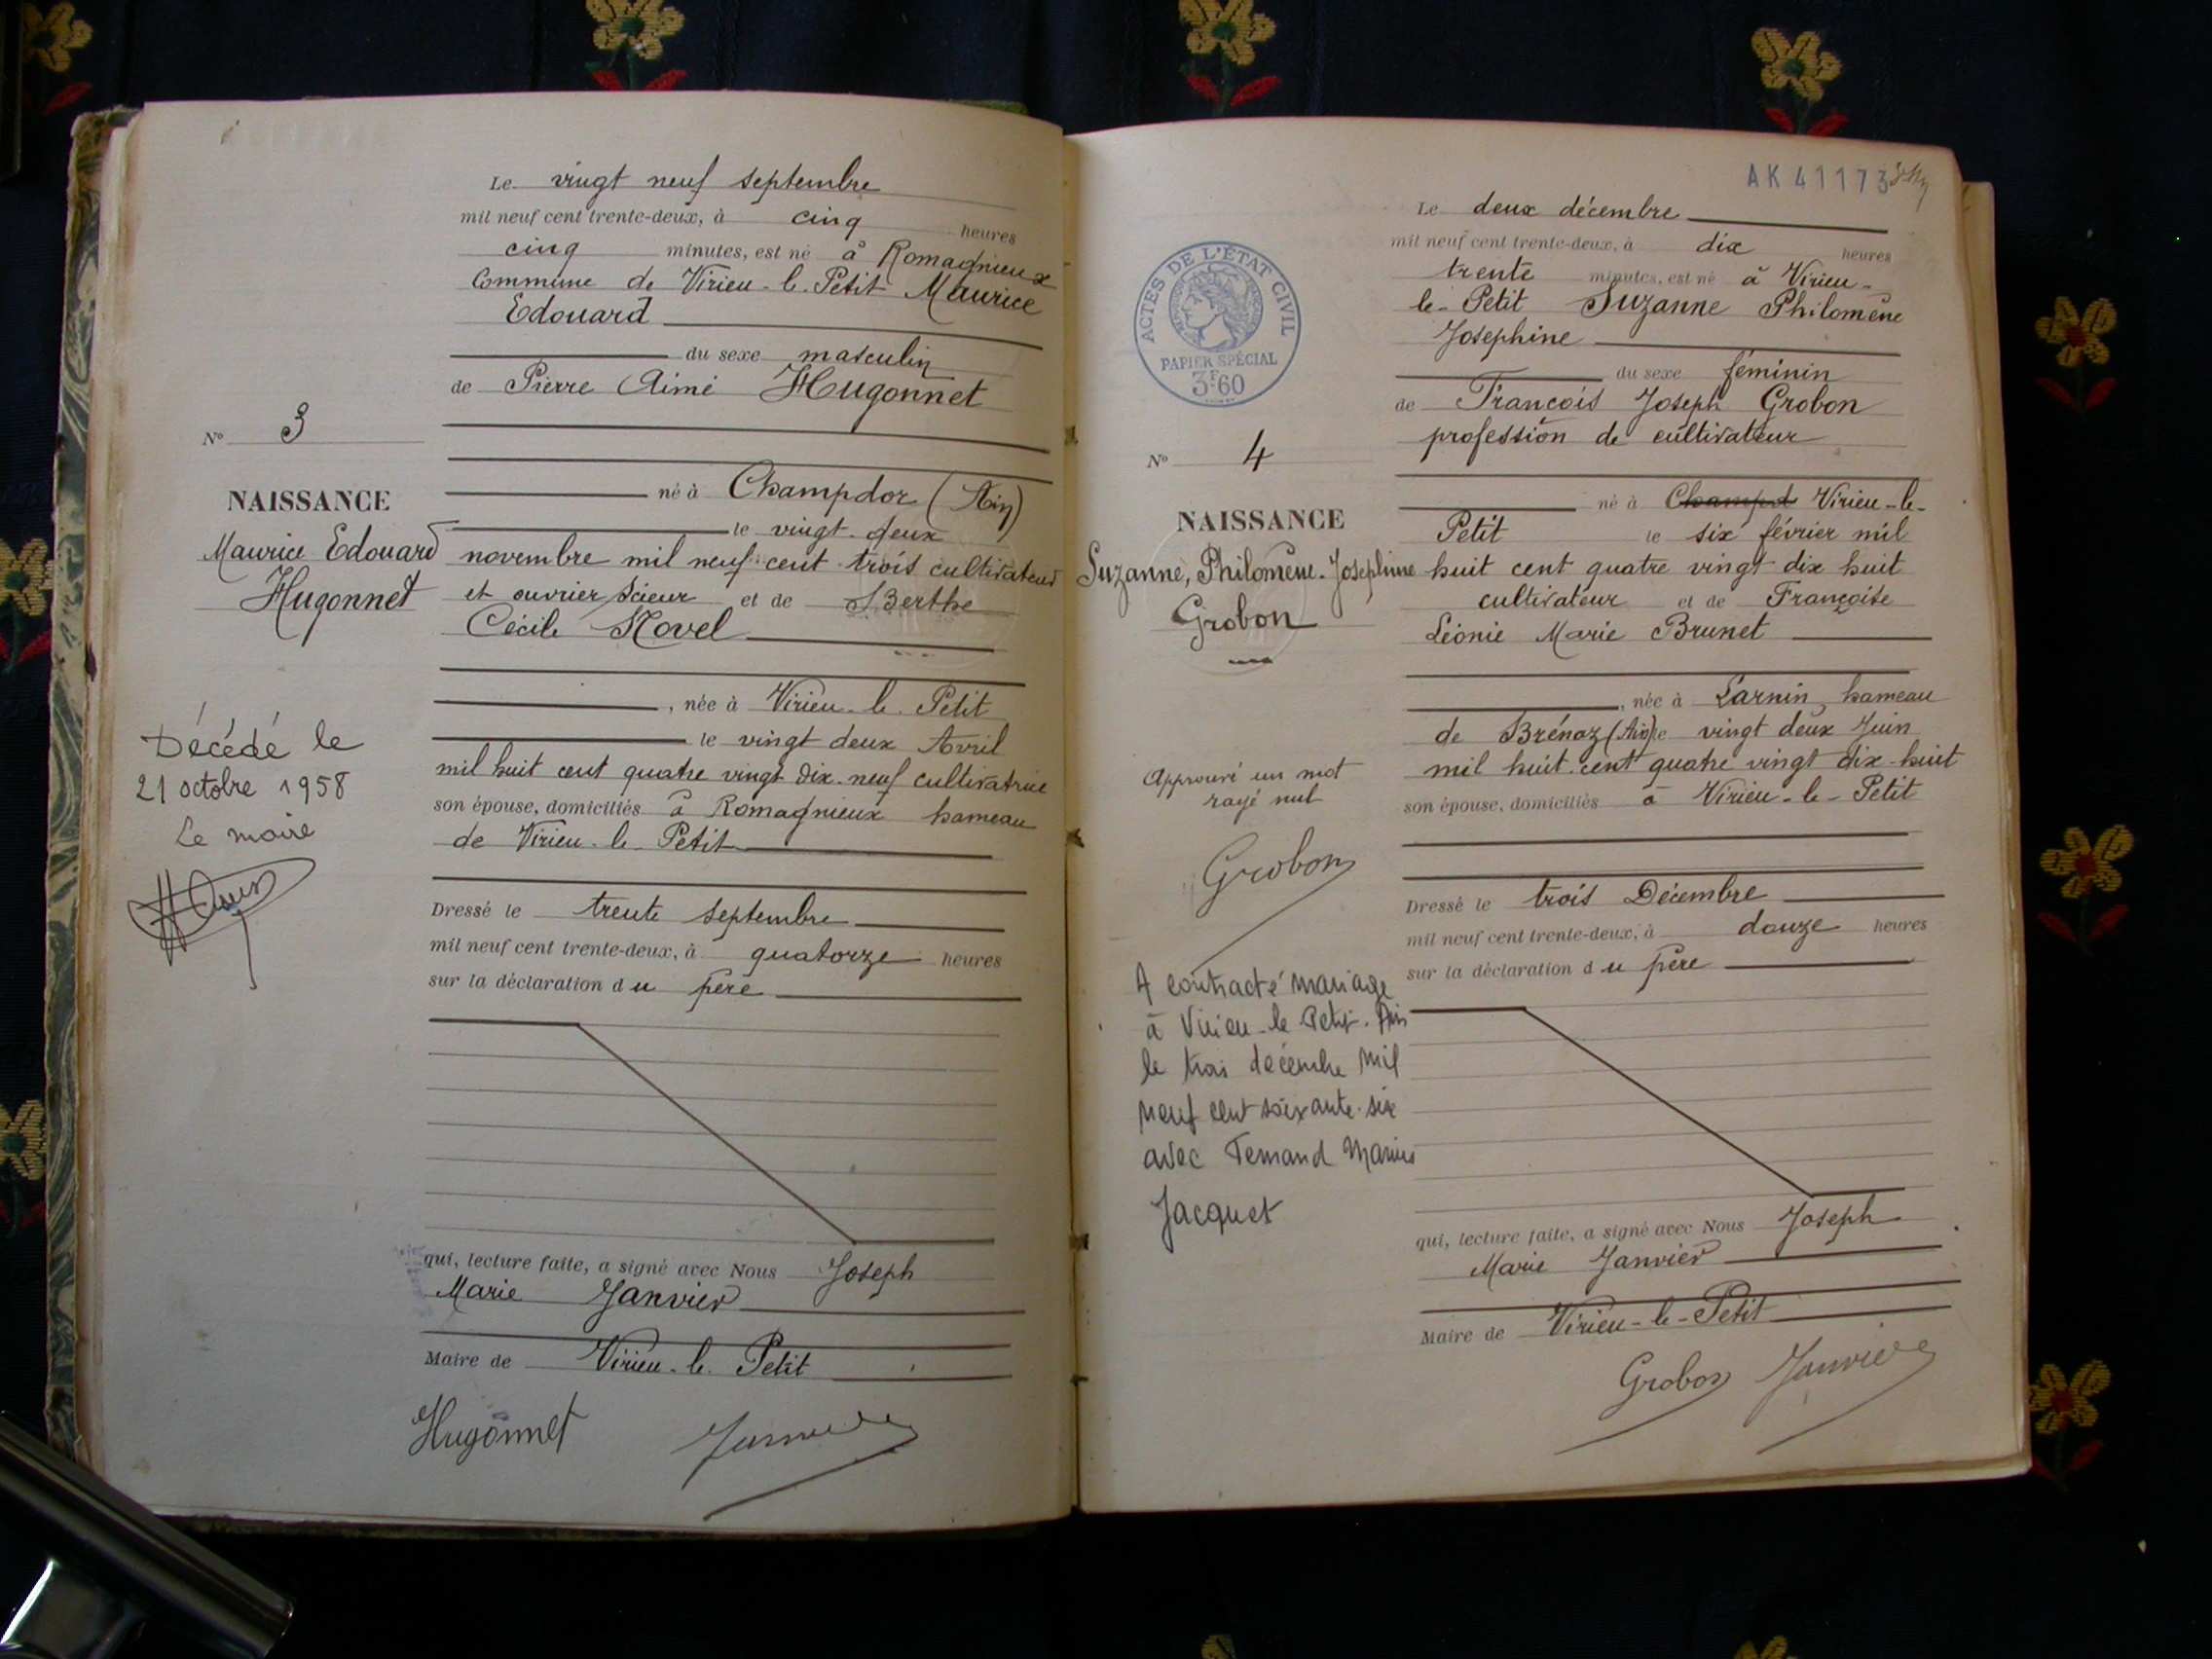 Le vingt neuf septembre
mil neuf cent trente-deux, à cinq heures
cinq minutes, est né à Romagnieux
Commune de Virieu-le-Petit Maurice
Edouard
du sexe masculin
de Pierre Aimé Hugonnet
N° 3
né à Champdor (Ain)
NAISSANCE
le vingt-deux
Maurice Edouard
novembre mil neuf cent trois cultivateur
Hugonnet
et ouvrier scieur et de Berthe
Cécile
née à Virieu-le-Petit
le vingt deux Avril
mil huit cent quatre vingt dix-neuf cultivatrice
son épouse, domiciliés à Romagnieux hameau
de Virieu-le-Petit
Décédé le
21 octobre 1958
Le maire
Dressé le trente septembre
mil neuf cent trente-deux, à quatorze heures
sur la déclaration du père
qui, lecture faite, a signé avec Nous Joseph
Marie Janvier
Maire de Virieu-le-Petit
Hugonnet Janvier
AK 41173
Le deux décembre
mil neuf cent trente-deux, à dix heures
trente minutes, est né à Virieu-
le-Petit Suzanne Philomène
Josephine
du sexe féminin
de François Joseph Grobon
profession de cultivateur
ACTES DE L'ÉTAT CIVIL
PAPIER SPÉCIAL
3F60
N° 4
né à Champd Virieu-le-
NAISSANCE
Petit le six février mil
Suzanne, Philomène-Josephine
huit cent quatre vingt dix huit
Grobon
cultivateur et de Françoise
Léonie Marie Brunet
née à Larnin, hameau
de Brénaz (Ain) le vingt deux Juin
mil huit-cent quatre vingt dix-huit
son épouse, domiciliés à Virieu-le-Petit
Approuvé un mot
rayé nul
Grobon
Dressé le trois Décembre
mil neuf cent trente-deux, à douze heures
sur la déclaration du père
A contracté mariage
à Virieu-le Petit. Ain
le trois décembre mil
neuf cent soixante-six
avec Fernand Marius
Jacquet
qui, lecture faite, a signé avec Nous Joseph
Marie Janvier
Maire de Virieu-le-Petit
Grobon Janvier